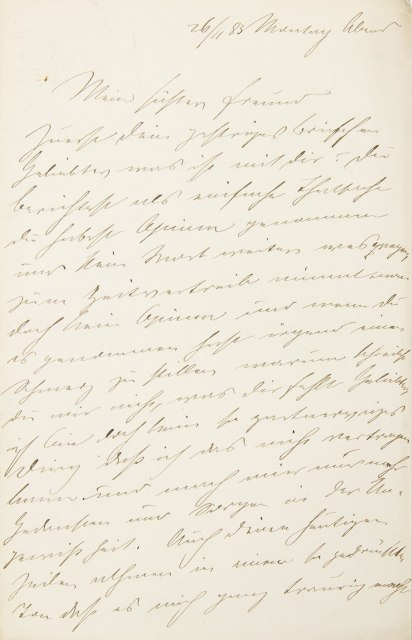 26/11 83 Montag Abend
Mein süßer Freund
Zuerst dein gestriges Briefchen
Geliebter was ist mit dir? Du
berichtest als einfache Thatsache
du habest Opium genommen
und kein Wort weiter
zum Zeitvertreib nimmt man
doch kein Opium und wenn du
es genommen hast irgend einen
Schmerz zu stillen warum schreibst
du mir nicht was dir fehlt Geliebter
ich bin doch kein so zartnerviges
Ding daß ich das nicht vertragen
kann und mach mir nur mehr
Gedanken und Sorgen in der Un-
gewißheit. Auch deine heutigen
Zeilen athmen in einem so gedrückten
Ton daß es mich ganz traurig macht